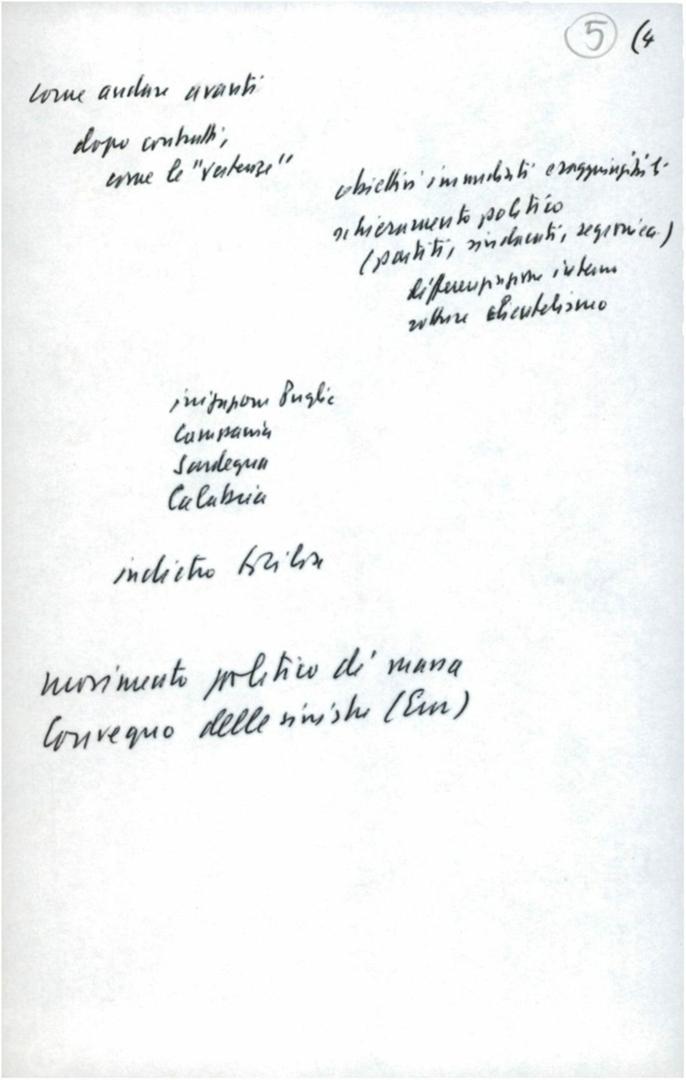 5 (4
come andare avanti
dopo contratti,
come le "vertenze"
obiettivi immediati e raggiungibili
schieramento politico
(partiti, sindacati, regioni ca.)
differenziazione interna
rottura clientelismo
iniziazione Puglie
Campania
Sardegna
Calabria
indietro Sicilia
movimento politico di massa
Convegno delle sinistre (Em)